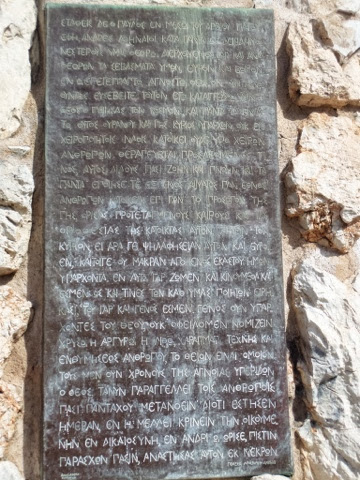 ΣΤΑΘΕΙΣ ΔΕ Ο ΠΑΥΛΟΣ ΕΝ ΜΕΣΩ ΤΟΥ ΑΡΕΙΟΥ ΠΑΓΟΥ
ΕΦΗ, ΑΝΔΡΕΣ ΑΘΗΝΑΙΟΙ ΚΑΤΑ ΠΑΝΤΑ ΩΣ ΔΕΙΣΙΔΑΙΜΟ
ΝΕΣΤΕΡΟΥΣ ΥΜΑΣ ΘΕΩΡΩ. ΔΙΕΡΧΟΜΕΝΟΣ ΓΑΡ ΚΑΙ ΑΝΑ
ΘΕΩΡΩΝ ΤΑ ΣΕΒΑΣΜΑΤΑ ΥΜΩΝ, ΕΥΡΟΝ ΚΑΙ ΒΩΜΟΝ
ΕΝ Ω ΕΠΕΓΕΓΡΑΠΤΟ, ΑΓΝΩΣΤΩ ΘΕΩ
ΕΥΣΕΒΕΙΤΕ, ΤΟΥΤΟΝ ΕΓΩ ΚΑΤΑΓΓΕΛΛΩ
ΠΟΙΗΣΑΣ ΤΟΝ ΚΟΣΜΟΝ ΚΑΙ ΠΑΝΤΑ ΤΑ ΕΝ
ΟΥΤΟΣ ΟΥΡΑΝΟΥ ΚΑΙ ΓΗΣ ΚΥΡΙΟΣ ΥΠΑΡΧΩΝ ΟΥΚ ΕΝ
ΧΕΙΡΟΠΟΙΗΤΟΙΣ ΝΑΟΙΣ ΚΑΤΟΙΚΕΙ ΟΥΔΕ ΥΠΟ ΧΕΙΡΩΝ
ΑΝΘΡΩΠΩΝ ΘΕΡΑΠΕΥΕΤΑΙ ΠΡΟΣΔΕΟΜΕΝΟΣ ΤΙ
ΝΟΣ, ΑΥΤΟΣ ΔΙΔΟΥΣ ΠΑΣΙ ΖΩΗΝ ΚΑΙ ΠΝΟΗΝ
ΠΑΝΤΑ ΕΠΟΙΗΣΕ ΤΕ ΕΞ ΕΝΟΣ ΑΙΜΑΤΟΣ ΠΑΝ ΕΘΝΟΣ
ΑΝΘΡΩΠΩΝ ΚΑΤΟΙΚΕΙΝ ΕΠΙ ΠΑΝ ΤΟ ΠΡΟΣΩΠΟΝ ΤΗΣ
ΓΗΣ, ΟΡΙΣΑΣ ΠΡΟΣΤΕΤΑΓΜΕΝΟΥΣ ΚΑΙΡΟΥΣ ΚΑΙ ΤΑΣ
ΟΡΟΘΕΣΙΑΣ ΤΗΣ ΚΑΤΟΙΚΙΑΣ ΑΥΤΩΝ ΖΗΤΕΙΝ ΤΟΝ
ΚΥΡΙΟΝ, ΕΙ ΑΡΑ ΓΕ ΨΗΛΑΦΗΣΕΙΑΝ ΑΥΤΟΝ ΚΑΙ ΕΥΡΟΙ
ΕΝ, ΚΑΙ ΤΟΙΓΕ ΟΥ ΜΑΚΡΑΝ ΑΠΟ ΕΝΟΣ ΕΚΑΣΤΟΥ ΗΜΩΝ
ΥΠΑΡΧΟΝΤΑ, ΕΝ ΑΥΤΩ ΓΑΡ ΖΩΜΕΝ ΚΑΙ ΚΙΝΟΥΜΕΘΑ ΚΑΙ
ΕΣΜΕΝ, ΩΣ ΚΑΙ ΤΙΝΕΣ ΤΩΝ ΚΑΘ ΥΜΑΣ ΠΟΙΗΤΩΝ ΕΙΡΗ
ΚΑΣΙ, ΤΟΥ ΓΑΡ ΚΑΙ ΓΕΝΟΣ ΕΣΜΕΝ. ΓΕΝΟΣ ΟΥΝ ΥΠΑΡ
ΧΟΝΤΕΣ ΤΟΥ ΘΕΟΥ ΟΥΚ ΟΦΕΙΛΟΜΕΝ ΝΟΜΙΖΕΙΝ
ΧΡΥΣΩ Η ΑΡΓΥΡΩ Η ΛΙΘΩ, ΧΑΡΑΓΜΑΤΙ ΤΕΧΝΗΣ ΚΑΙ
ΕΝΘΥΜΗΣΕΩΣ ΑΝΘΡΩΠΟΥ, ΤΟ ΘΕΙΟΝ ΕΙΝΑΙ ΟΜΟΙΟΝ.
ΤΟΥΣ ΜΕΝ ΟΥΝ ΧΡΟΝΟΥΣ ΤΗΣ ΑΓΝΟΙΑΣ ΥΠΕΡΙΔΩΝ
Ο ΘΕΟΣ ΤΑΝΥΝ ΠΑΡΑΓΓΕΛΛΕΙ ΤΟΙΣ ΑΝΘΡΩΠΟΙΣ
ΠΑΣΙ ΠΑΝΤΑΧΟΥ ΜΕΤΑΝΟΕΙΝ, ΔΙΟΤΙ ΕΣΤΗΣΕΝ
ΗΜΕΡΑΝ, ΕΝ Η ΜΕΛΛΕΙ ΚΡΙΝΕΙΝ ΤΗΝ ΟΙΚΟΥΜΕ
ΝΗΝ ΕΝ ΔΙΚΑΙΟΣΥΝΗ, ΕΝ ΑΝΔΡΙ Ω ΩΡΙΣΕ, ΠΙΣΤΙΝ
ΠΑΡΑΣΧΩΝ ΠΑΣΙΝ, ΑΝΑΣΤΗΣΑΣ ΑΥΤΟΝ ΕΚ ΝΕΚΡΩΝ